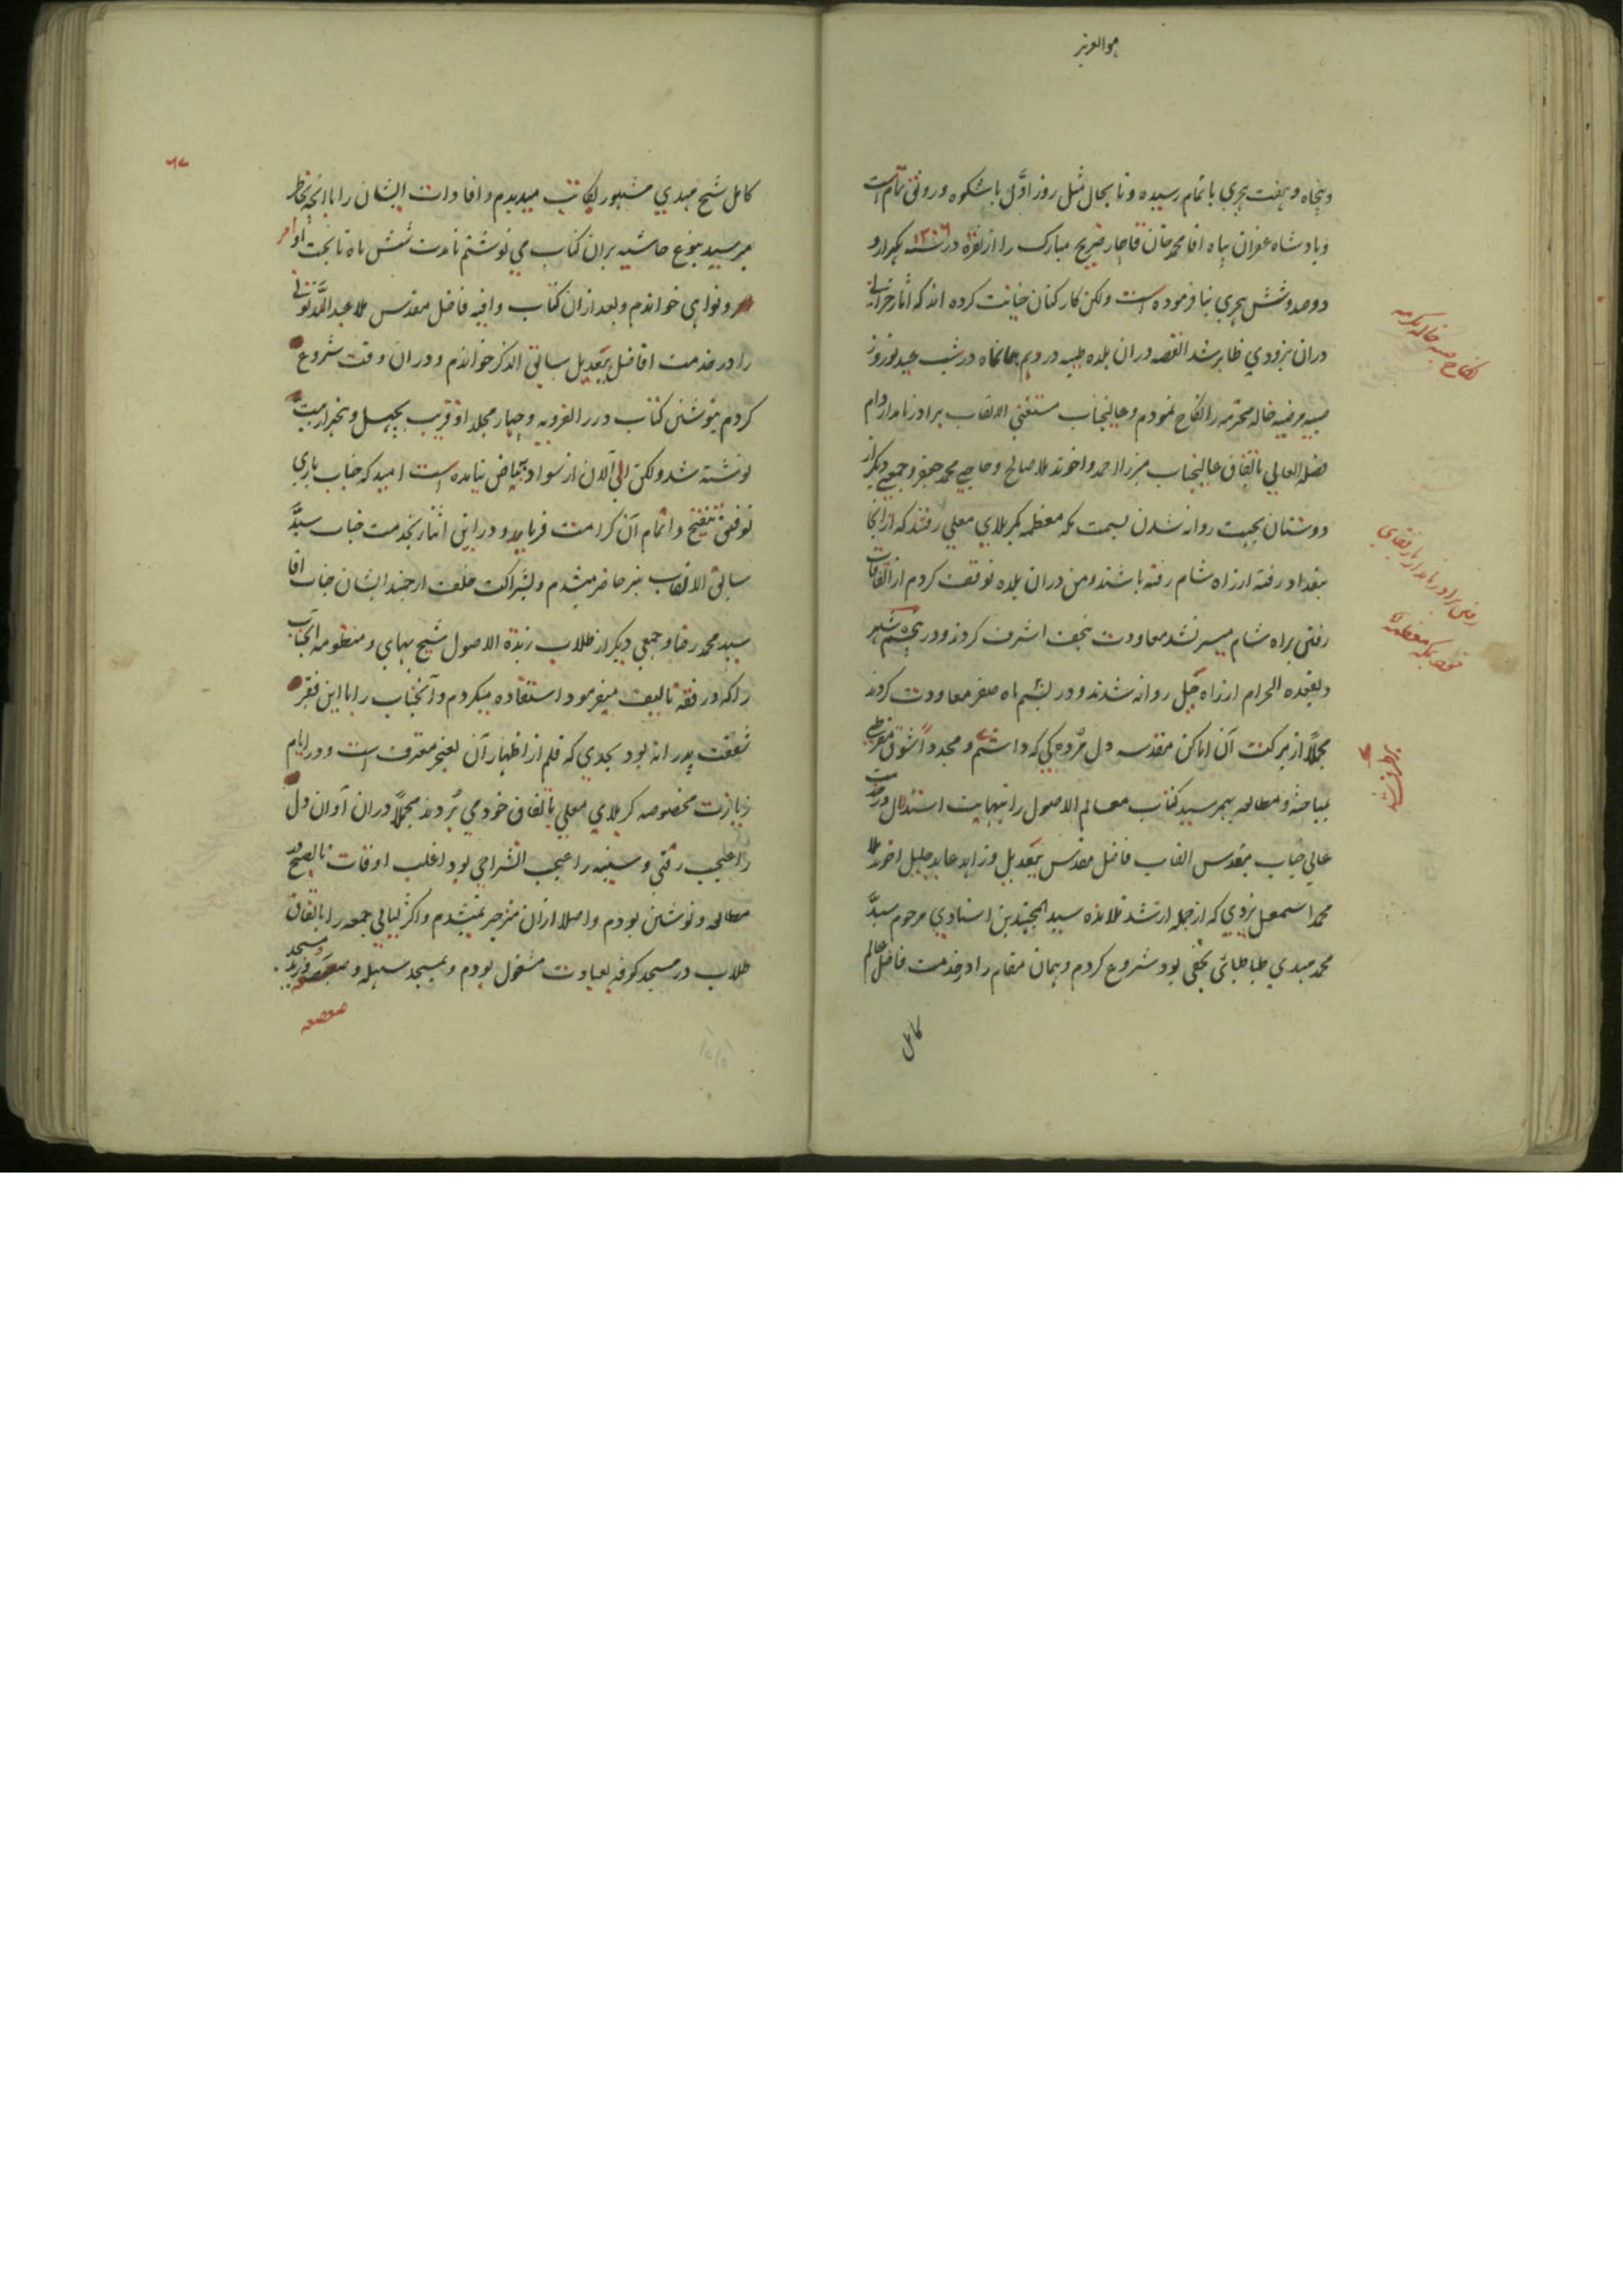 هو العزیز
و پنجاه و هفت هجری باتمام رسیده و تا بحال مثل روز اول با شکوه و رونق تمام است
و پادشاه غفران پناه اقا محمد خان قاجار ضریح مبارک را از نقره در سنه ۱۲۰۶ یکهزار و
دوصد و شش هجری بنا فرموده است ولکن کارکنان خیانت کرده اند که اثار خرابی
دران بزودی ظاهر شد القصه دران بلده طیبه در دویم همانماه در شب عید نوروز
صبیه مرضیه خاله محترمه را نکاح نمودم و عالیجناب مستغنی الالقاب برادر نامدار دام
فضله العالی باتفاق عالیجناب میرزا احمد و اخوند ملا صالح و حاجی محمد جعفر و جمعی دیگر از
دوستان بجهت روانه شدن بسمت مکه معظمه بکربلای معلی رفتند که از انجا
ببغداد رفته از راه شام رفته باشند و من دران بلده توقف کردم از اتفاقات
رفتن براه شام میسر نشد معاودت بنجف اشرف کردند و در پنجم شهر
ذیقعده الحرام از راه جبل روانه شدند و در بیستم ماه صفر معاودت کردند
مجملاً از برکت آن اماکن مقدسه دل مرده کی که داشتم و مجدداً شوق مفرطی
بمباحثه و مطالعه بهمرسید کتاب معالم الاصول را بنهایت استدلال در خدمت
عالی جناب مقدس القاب فاضل مقدس بیعدیل و زاهد عابد جلیل اخوند ملا
محمد اسمعیل یزدی که از جمله ارشد تلامذه سید المجتهدین استادی مرحوم سید
محمد مهدی طباطبائی نجفی بود شروع کردم و همان مقام را در خدمت فاضل عالم
کامل
نکاح صبیه خاله مکرمه
رفتن برادر نامدار با رفقای
خود بمکه معظمه
کامل شیخ مهدی مشهور بکاتب میدیدم و افادات ایشان را با انچه بخاطر
میرسید بنوع حاشیه بران کتاب می نوشتم تا مدت شش ماه تا بحث اوامر
و نواهی خواندم و بعد ازان کتاب وافیه فاضل مقدس ملا عبد الله تونی
را در خدمت افاضل بیعدیل سابق الذکر خواندم و دران وقت شروع
کردم بنوشتن کتاب درر الغرویه و چهار مجلد او قریب بچهل و پنجهزار بیت
نوشته شد ولکن الی الآن از سواد به بیاض نیامده است امید که جناب باری
توفیق تنقیح و اتمام آن کرامت فرماید و در این اثنا بخدمت جناب سید
سابق الالقاب نیز حاضر میشدم و بشراکت خلف ارجمند ایشان جناب اقا
سید محمد رضا و جمعی دیگر از طلاب زبدة الاصول شیخ بهای و منظومه انجناب
را که در فقه تالیف میفرمود استفاده میکردم و آنجناب را با این فقیر
شفقت پدرانه بود بحدی که قلم از اظهار آن بعجز معترف است و در ایام
زیارت مخصوصه کربلای معلی باتفاق خود می بردند مجملاً دران آوان دل
را عجب رقتی و سینه را عجب انشراحی بود اغلب اوقات تا بصبح در
مطالعه و نوشتن بودم و اصلا ازان منزجر نمیشدم و اکثر لیالی جمعه را باتفاق
طلاب در مسجد کوفه بعبادت مشغول بودم و بمسجد سهله و مسجد
صعصعه